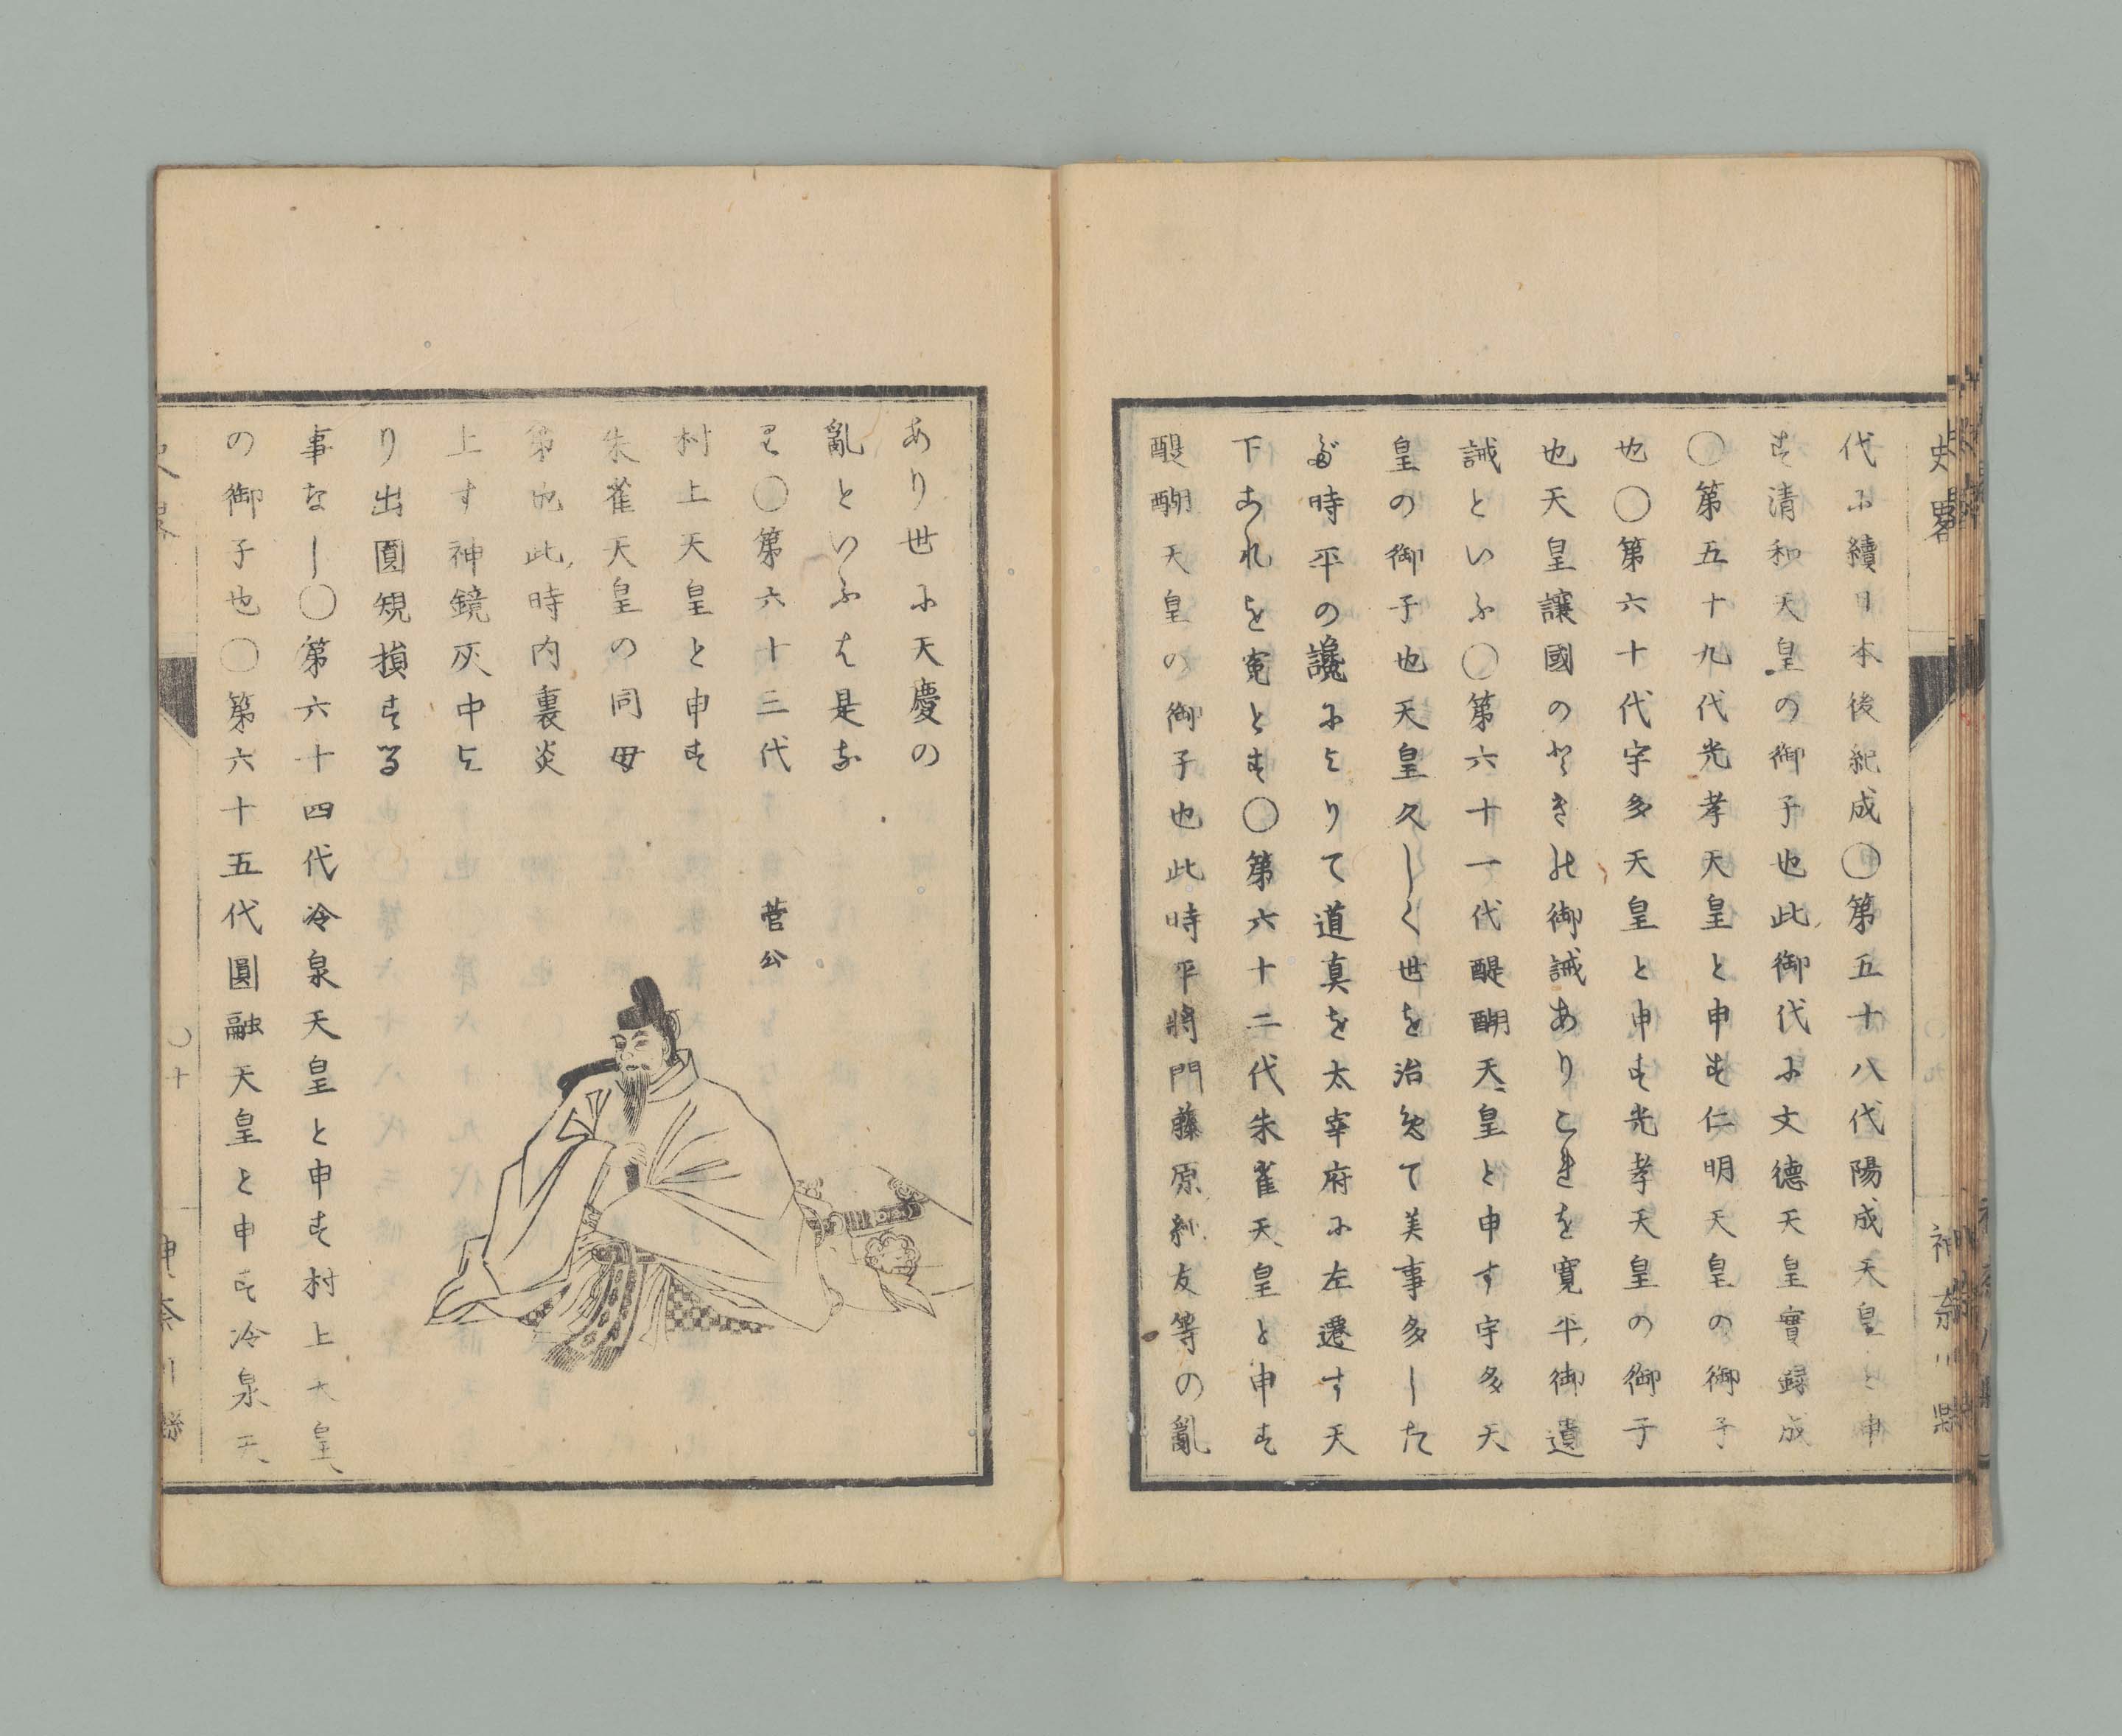 史畧
神奈川縣
代に續日本後紀成〇第五十八代陽成天皇と申
す清和天皇の御子也此御代に文德天皇實録成
〇第五十九代光孝天皇と申す仁明天皇の御子
也〇第六十代宇多天皇と申す光孝天皇の御子
也天皇讓國のときの御誡ありこれを寛平御遺
誡といふ〇第六十一代醍醐天皇と申す宇多天
皇の御子也天皇久しく世を治めて美事多した
だ時平の讒によりて道真を太宰府に左遷す天
下これを寃とす〇第六十二代朱雀天皇と申す
醍醐天皇の御子也此時平將門藤原純友等の亂
あり世に天慶の
亂といふは是な
り〇第六十三代
村上天皇と申す
朱雀天皇の同母
第也此時内裏炎
上す神鏡灰中よ
り出圓規損する
事なし〇第六十四代冷泉天皇と申す村上天皇
の御子也〇第六十五代圓融天皇と申す冷泉天
菅公
〇十